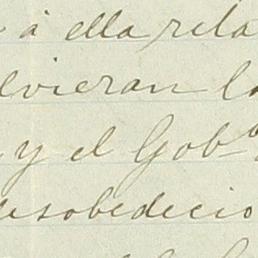 á ella rela
lvieran l
y el Gob.º
desobedecio